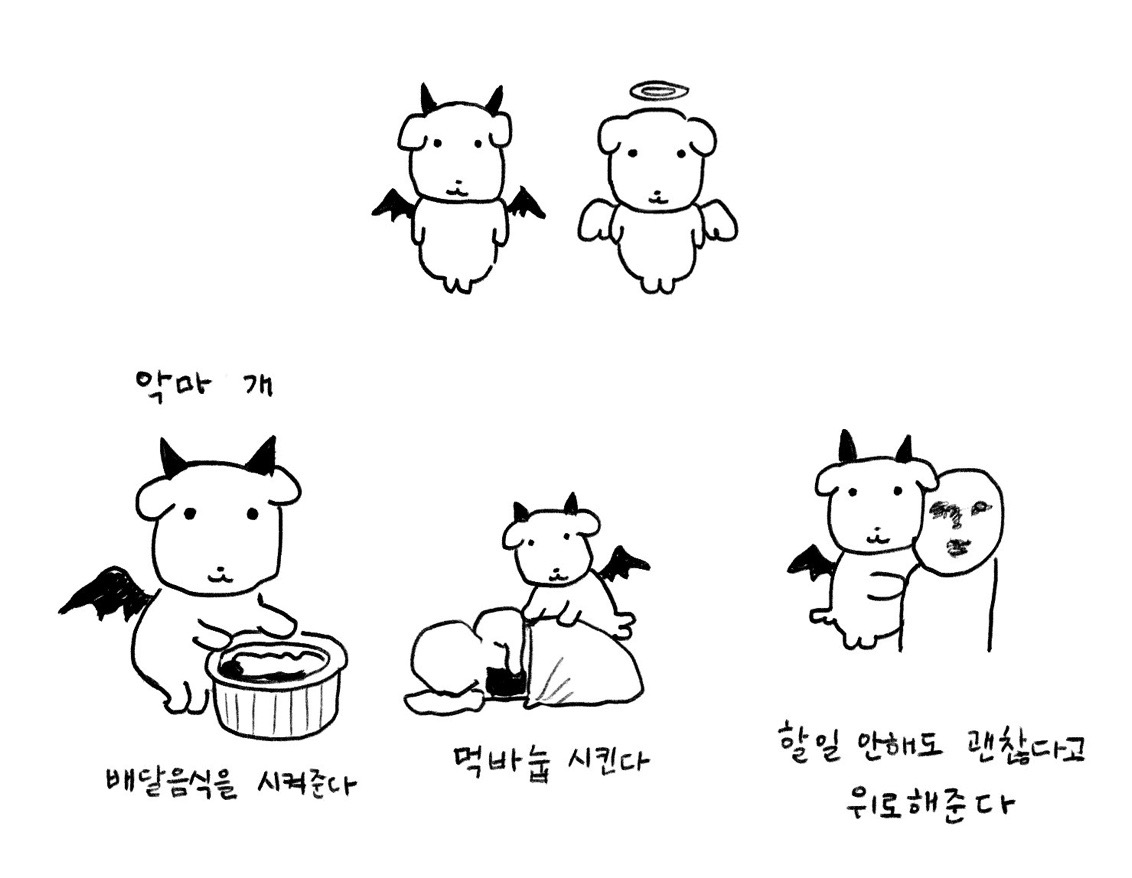 악마 개
배달음식을 시켜준다
먹바눕 시킨다
할일 안해도 괜찮다고
위로해준다